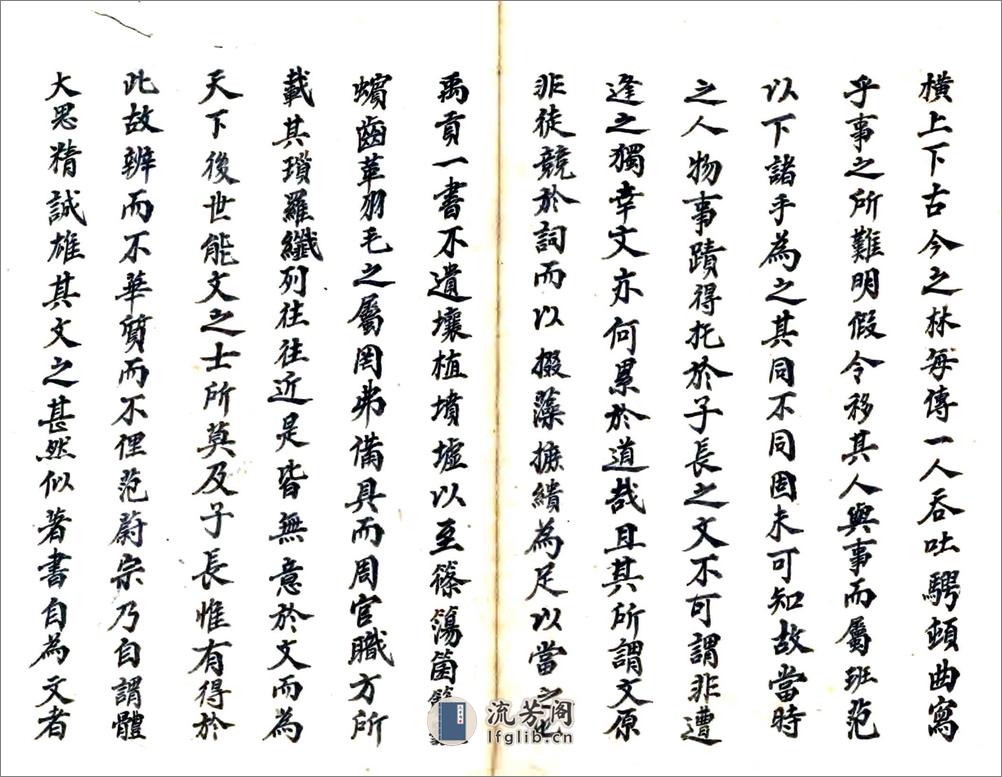 橫上下古今之林每傳一人吞吐騁頓曲寫
乎事之所難明假令移其人與事而屬班范
以下諸手為之其同不同固未可知故當時
之人物事蹟得托於子長之文不可謂非遭
逢之獨幸文亦何累於道哉且其所謂文原
非徒競於詞而以掇藻摭繢為足以當之也
禹貢一書不遺壤植墳壚以至篠簜箘簵
蠙齒革羽毛之屬罔弗備具而周官職方所
載其瑣羅纖列往往近是皆無意於文而為
天下後世能文之士所莫及子長惟有得於
此故辨而不華質而不俚范蔚宗乃自謂體
大思精誠雄其文之甚然似著書自為文者
流芳阁
lfglib.cn